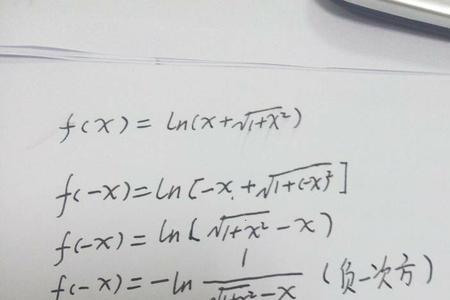 f(x) = ln(x+√1+x²)
f(-x)=ln[-x+√1+(-x)²]
f(-x) = ln(√1+x² -x)
f(-x) = -ln 1/(√1+x² -x) (负一次方)